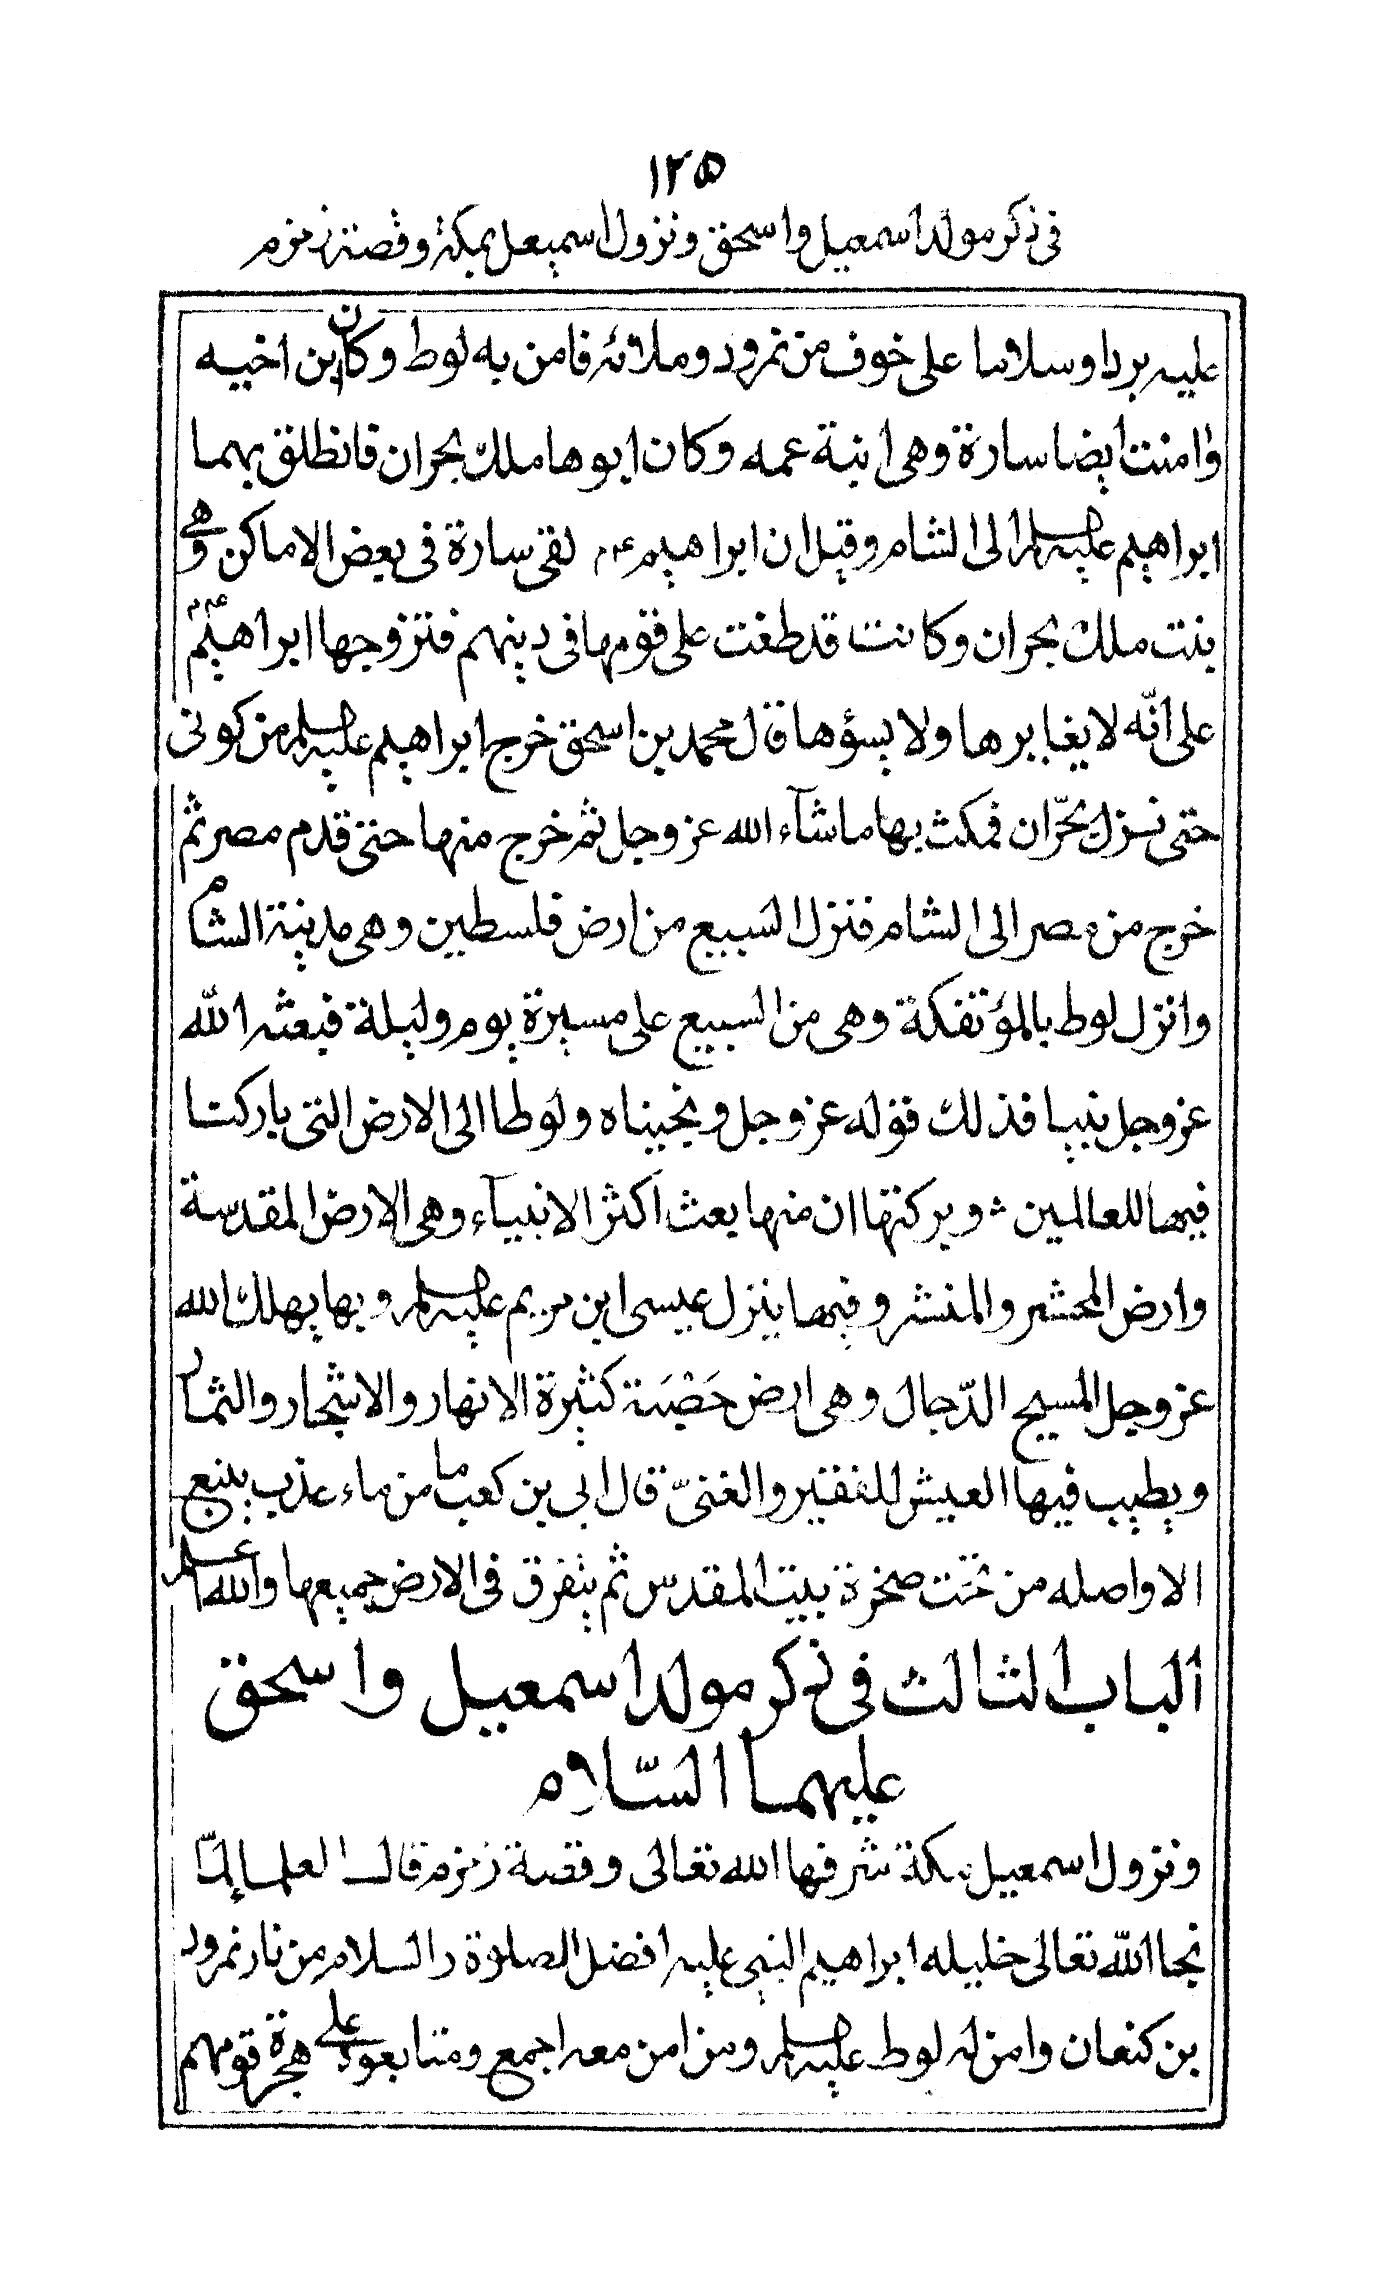 ١٢٥
فى ذكر مولد اسمعيل واسحق ونزول اسميعل بمكة وقصة زمزم
عليه بردا وسلاما على خوف من نمرود وملائه فامن به لوط وكان ابن اخيه
وامنت ايضا سارة وهى ابنة عمه وكان ابوها ملك بحران فانطلق بهما
ابراهيم عليه السلام الى الشام وقيل ان ابراهيم عم لقى سارة فى بعض الاماكن وهى
بنت ملك بحران وكانت قد طغت على قومها فى دينهم فتزوجها ابراهيم عم
على انّه لا يغايرها ولا يسؤها قال محمد بن اسحق خرج ابراهيم عليه السلام من كوثى
حتى نزل بحرّان فمكث بها ما شآء الله عز وجل ثم خرج منها حتى قدم مصر ثم
خرج من مصر الى الشام فنزل السبيع من ارض فلسطين وهى مدينة الشام
وانزل لوط بالمؤتفكة وهى من السبيع على مسيرة يوم وليلة فبعثه الله
عز وجل نبيا فذلك قوله عز وجل ونجيناه ولوطا الى الارض التى باركنا
فيها للعالمين وبركتها ان منها بعث اكثر الانبيآء وهى الارض المقدسة
وارض المحشر والمنشر وفيها ينزل عيسى ابن مريم عليه السلام وبها يهلك الله
عز وجل المسيح الدّجال وهى ارض خصبة كثيرة الانهار والاشجار والثمار
ويطيب فيها العيش للفقير والغنىّ قال ابى بن كعب ما من ماء عذب ينبع
الا واصله من تحت صخرة بيت المقدس ثم يتفرق فى الارض جميعها والله اعلم
الباب الثالث فى ذكر مولد اسمعيل واسحق
عليهما السّلام
ونزول اسمعيل بمكة شرفها الله تعالى وقصة زمزم قال العلماء لمّا
نجا الله تعالى خليله ابراهيم النبى عليه افضل الصلوة والسلام من نار نمرود
بن كنعان وامن له لوط عليه السلام ومن امن معه اجمع ومتابعوه على هجرة قومهم